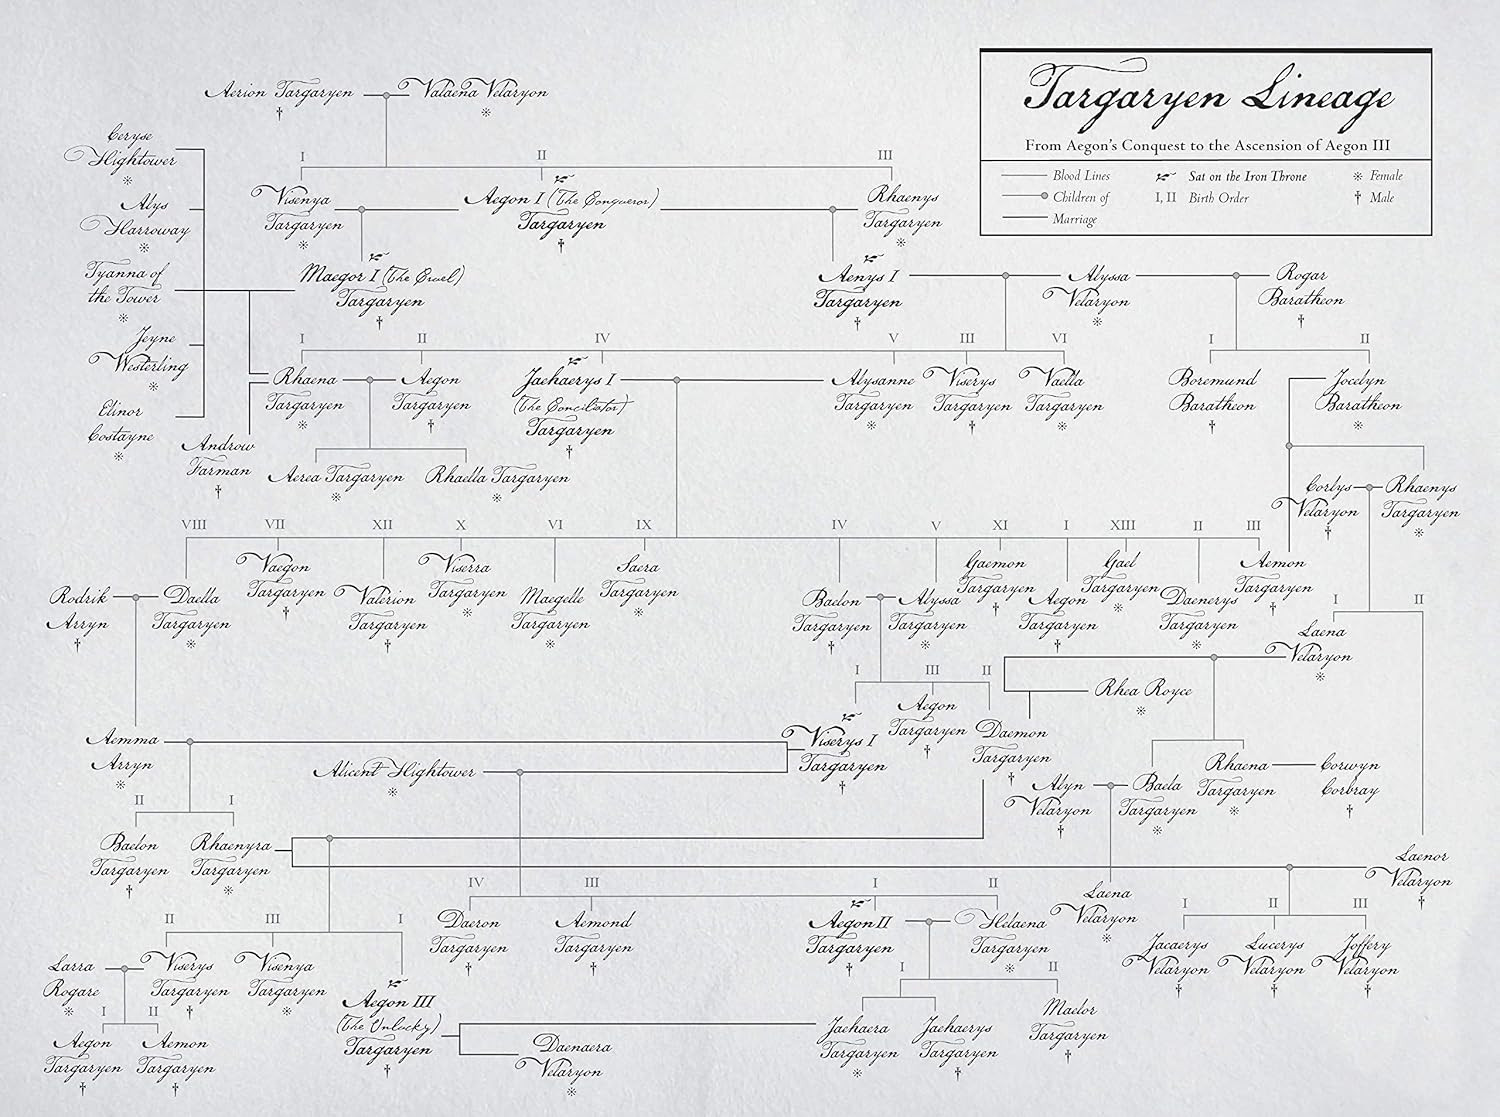 Targaryen Lineage
From Aegon's Conquest to the Ascension of Aegon III
Blood Lines
Children of
Marriage
Sat on the Iron Throne
I, II Birth Order
※ Female
† Male
Aerion Targaryen
†
Valaena Velaryon
※
Ceryse
Hightower
※
Alys
Harroway
※
Tyanna of
the Tower
※
Jeyne
Westerling
※
Elinor
Costayne
※
I
II
III
Visenya
Targaryen
※
Aegon I (The Conqueror)
Targaryen
†
Rhaenys
Targaryen
※
Maegor I (The Cruel)
Targaryen
†
Aenys I
Targaryen
†
Alyssa
Velaryon
※
Rogar
Baratheon
†
I
II
IV
V
III
VI
I
II
Rhaena
Targaryen
※
Aegon
Targaryen
†
Jaehaerys I
(The Conciliator)
Targaryen
†
Alysanne
Targaryen
※
Viserys
Targaryen
†
Vaella
Targaryen
※
Boremund
Baratheon
†
Jocelyn
Baratheon
※
Androw
Farman
†
Aerea Targaryen
※
Rhaella Targaryen
※
Corlys
Velaryon
†
Rhaenys
Targaryen
※
VIII
VII
XII
X
VI
IX
IV
V
XI
I
XIII
II
III
Rodrik
Arryn
†
Daella
Targaryen
※
Vaegon
Targaryen
†
Valerion
Targaryen
†
Viserra
Targaryen
※
Maegelle
Targaryen
※
Saera
Targaryen
※
Baelon
Targaryen
†
Alyssa
Targaryen
※
Gaemon
Targaryen
†
Aegon
Targaryen
†
Gael
Targaryen
※
Daenerys
Targaryen
※
Aemon
Targaryen
†
I
II
Laena
Velaryon
※
I
III
II
Rhea Royce
※
Viserys I
Targaryen
†
Aegon
Targaryen
†
Daemon
Targaryen
†
Aemma
Arryn
※
Alicent Hightower
※
Alyn
Velaryon
†
Baela
Targaryen
※
Rhaena
Targaryen
※
Corwyn
Corbray
†
II
I
Baelon
Targaryen
†
Rhaenyra
Targaryen
※
Laenor
Velaryon
†
IV
III
I
II
Daeron
Targaryen
†
Aemond
Targaryen
†
Aegon II
Targaryen
†
Helaena
Targaryen
※
Laena
Velaryon
※
I
II
III
Jacaerys
Velaryon
†
Lucerys
Velaryon
†
Joffery
Velaryon
†
II
III
I
Larra
Rogare
※
Viserys
Targaryen
†
Visenya
Targaryen
※
Aegon III
(The Unlucky)
Targaryen
†
I
II
Aegon
Targaryen
†
Aemon
Targaryen
†
Daenaera
Velaryon
※
I
II
Jaehaera
Targaryen
※
Jaehaerys
Targaryen
†
Maelor
Targaryen
†